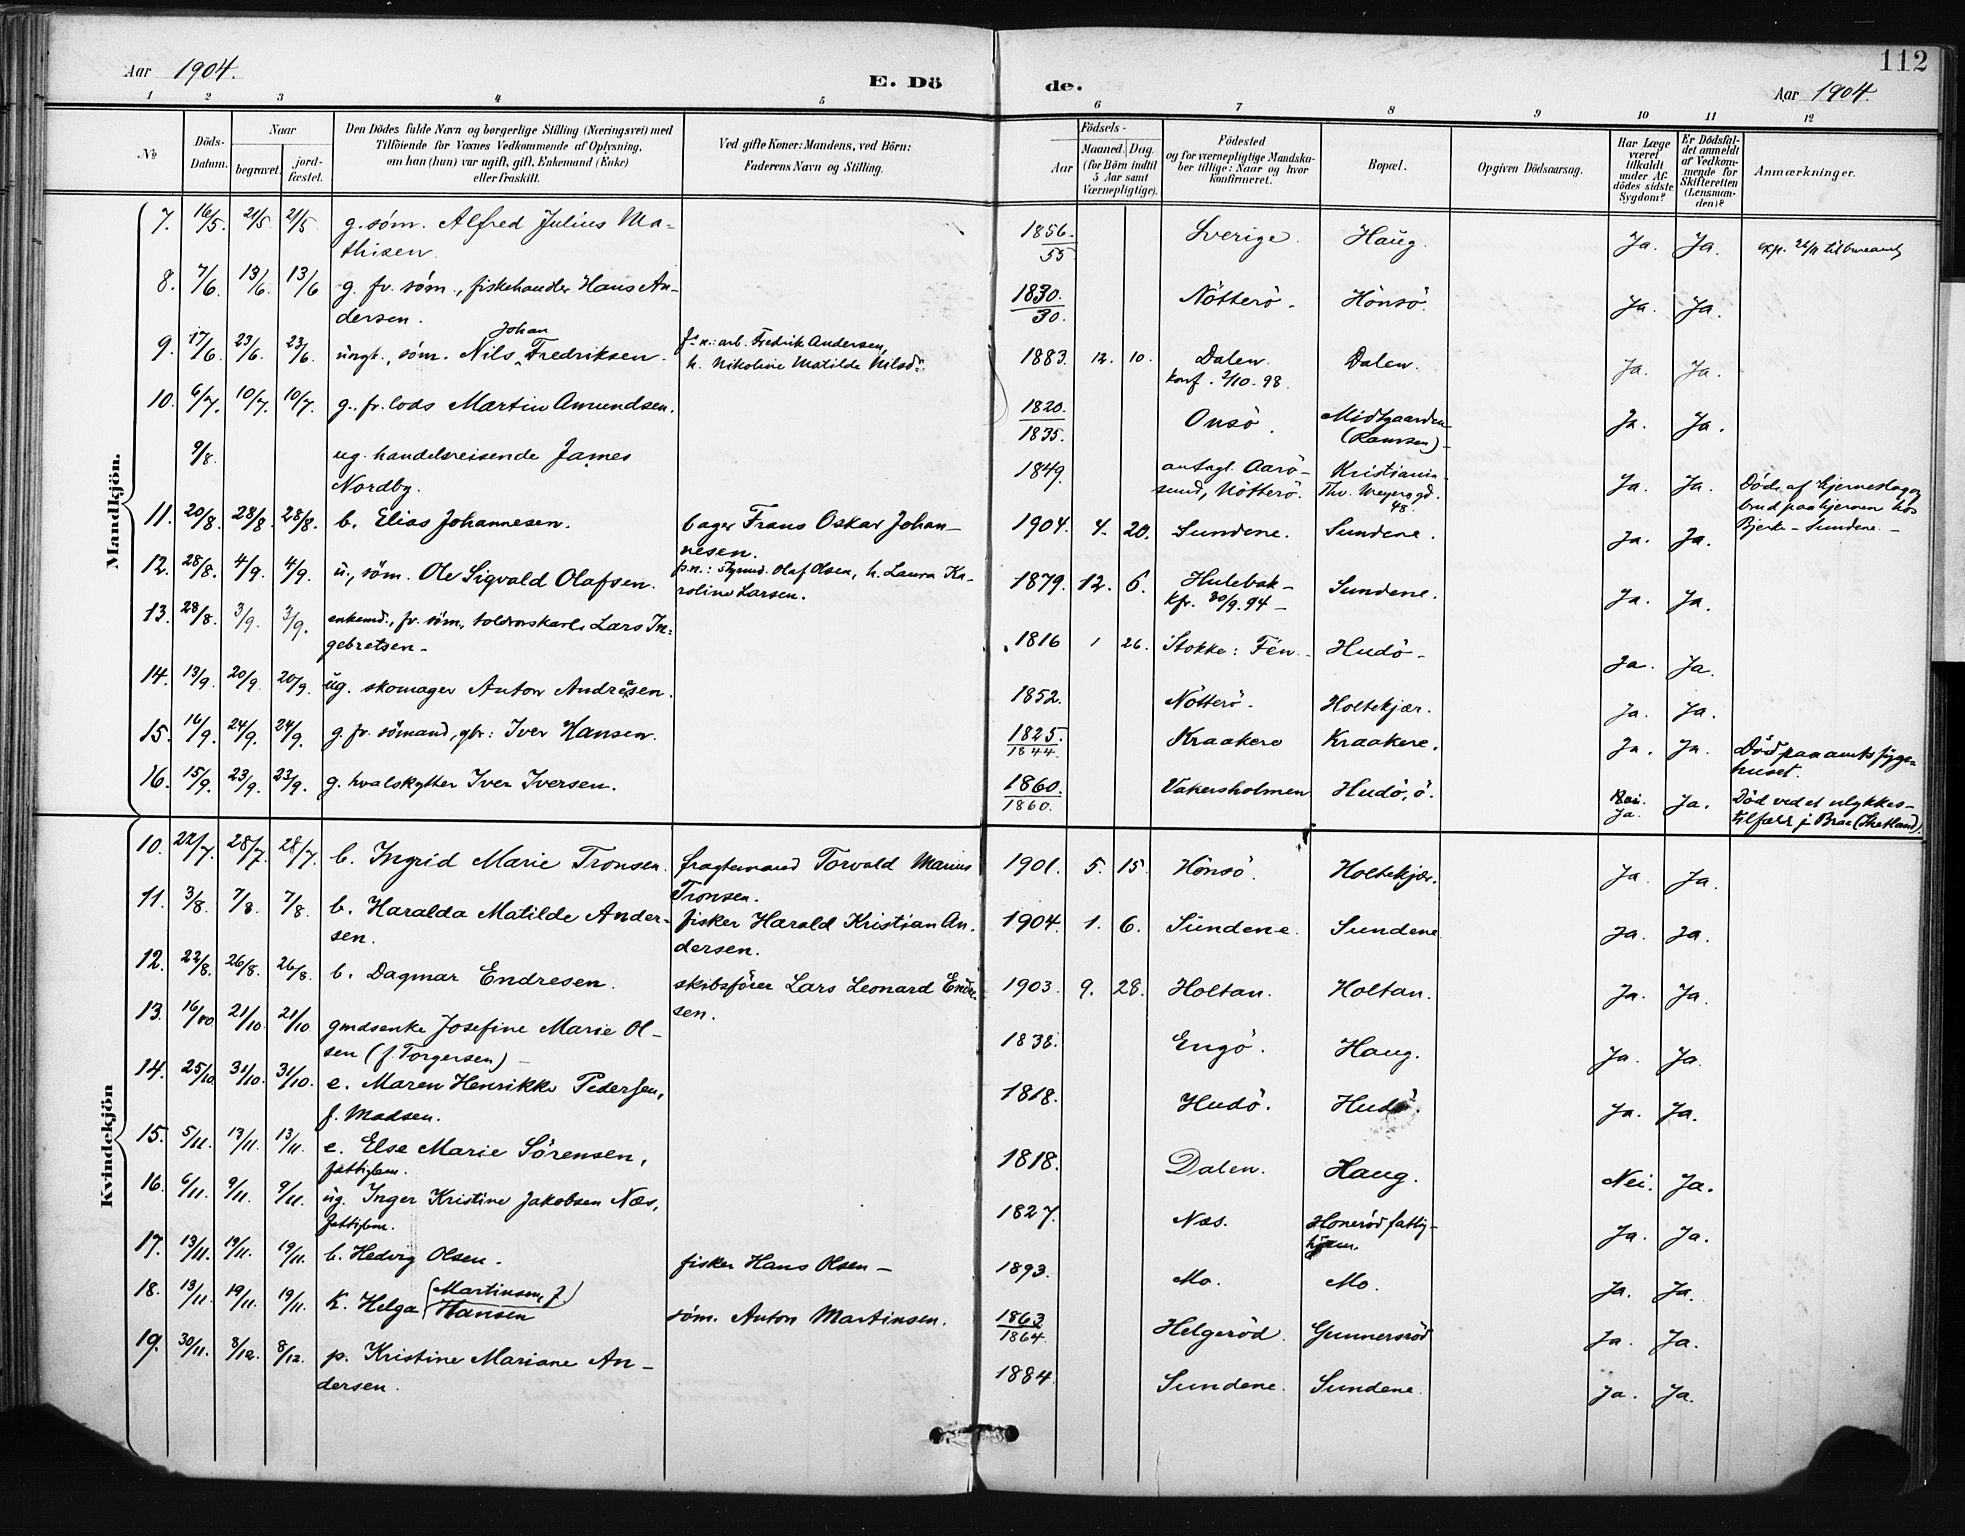 112
Aar 1904.
E. Döde.
Aar 1904.
1 2 3 4 5 6 7 8 9 10 11 12
No
Döds-Datum.
Naar
begravet.
jord-fæstet.
Den Dödes fulde Navn og borgerlige Stilling (Næringsvei) med
Tilföiende for Voxnes Vedkommende af Oplysning,
om han (hun) var ugift, gift, Enkemand (Enke)
eller fraskilt.
Ved gifte Koner: Mandens, ved Börn:
Faderens Navn og Stilling.
Födsels-
Aar
Maaned.
Dag.
(for Börn indtil
5 Aar samt
Værnepligtige).
Födested
og for værnepligtige Mandska-
ber tillige: Naar og hvor
konfirmeret.
Bopæl.
Opgiven Dödsaarsag.
Har Læge
været
tilkaldt
under Af-
dödes sidste
Sygdom?
Er Dödsfal-
det anmeldt
af Vedkom-
mende for
Skifteretten
(Lensman-
den)?
Anmærkninger.
Mandkjön.
7. 16/5. 21/5 21/5 g. söm. Alfred Julius Ma-
thisen. 1856. 55 Sverige. Haug. Ja. Ja.
8. 7/6. 13/6. 13/6 g. fv. söm., fiskehandler Hans An-
dersen. 1830. 30. Nötterö. Hönsö. Ja. Ja.
9. 17/6. 23/6. 23/6. ungk., söm. Nils Johan Fredriksen. f. n.: arb. Fredrik Andersen,
h. Nikoline Matilde Nilsd. 1883. 12. 10. Dalen. Dalen. Ja. Ja.
konf. 2/10. 98.
10. 6/7. 10/7. 10/7. g. fv. lods Martin Amundsen. 1820. 1835. Onsö. Midtgaarden
(Ramsen) Ja. Ja.
9/8. ug. handelsreisende James
Nordby. 1849. antagl. Aarö-
sund, Nötterö. Kristiania
Thv. Meyers gd.
48. Ja. Ja. Död af hjerneslag og
brud paa hjernen hos
Bjerke - Sundene.
11. 20/8. 28/8. 28/8. b. Elias Johannesen. bager Frans Oskar Johan-
nesen. 1904. 4. 20. Sundene. Sundene. Ja. Ja.
12. 28/8. 4/9. 4/9. u., söm. Ole Sigvald Olafsen. f. n.: styrmd. Olaf Olsen, h. Laura Ka-
roline Larsen. 1879. 12. 6. Hulebak-
kfr. 30/9. 94 - Sundene. Ja. Ja.
13. 28/8. 3/9. 3/9. enkemd., fv. söm., toldroskarl Lars In-
gebretsen - 1816 1 26. Stokke: Fén. Hudö - Ja. Ja.
14. 13/9. 20/9. 20/9. ug. skomager Anton Andreasen. 1852. Nötterö. Holtekjær. Ja. Ja.
15. 16/9. 24/9. 24/9. g. fv. sömand, gbr: Iver Hansen. 1825. 1844. Kraakere Kraakere. Ja. Ja. Död paa amts syge-
huset.
16. 15/9. 23/9. 23/9. g. hvalskytter Iver Iversen. 1860. 1860. Vakersholmen Hudö, ö. Nei. Ja. Ja. Död ved et ulykkes-
tilfælde i Brae (Shetland).
Kvindekjön
10. 22/7. 28/7. 28/7. b. Ingrid Marie Tronsen. fragtemand Torvald Marius
Tronsen. 1901. 5. 15. Hönsö. Holtekjær. Ja. Ja.
11. 3/8. 7/8. 7/8. b. Haralda Matilde Ander-
sen. fisker Harald Kristian An-
dersen. 1904. 1. 6. Sundene. Sundene. Ja. Ja.
12. 22/8. 26/8. 26/8. b. Dagmar Endresen. skibsförer Lars Leonard Endre-
sen. 1903. 9. 28. Holtan. Holtan. Ja. Ja.
13. 16/10. 21/10. 21/10 gmdsenke Josefine Marie Ol-
sen (f. Torgersen) - 1838. Engö. Haug. Ja. Ja.
14. 25/10. 31/10. 31/10. e. Maren Henrikke Pedersen,
f. Madsen. 1818. Hudö. Hudö. Ja. Ja.
15. 5/11. 13/11. 13/11. e. Else Marie Sörensen,
fattiglem. 1818. Dalen. Haug. Nei. Ja.
16. 6/11. 9/11. 9/11. ug. Inger Kristine Jakobsen Næs,
fattiglem. 1827. Næs. Honeröd fattig-
hjem. Ja. Ja.
17. 13/11. 19/11. 19/11. b. Hedvig Olsen. fisker Hans Olsen - 1893. Mo. Mo. Ja. Ja.
18. 13/11. 19/11. 19/11. k. Helga (Martinsen, f.
Hansen söm. Anton Martinsen. 1863 1864. Helgeröd. Gunnersröd Ja. Ja.
19. 30/11. 8/12. 8/12. p. Kristine Mariane An-
dersen. 1884. Sundene. Sundene. Ja. Ja.